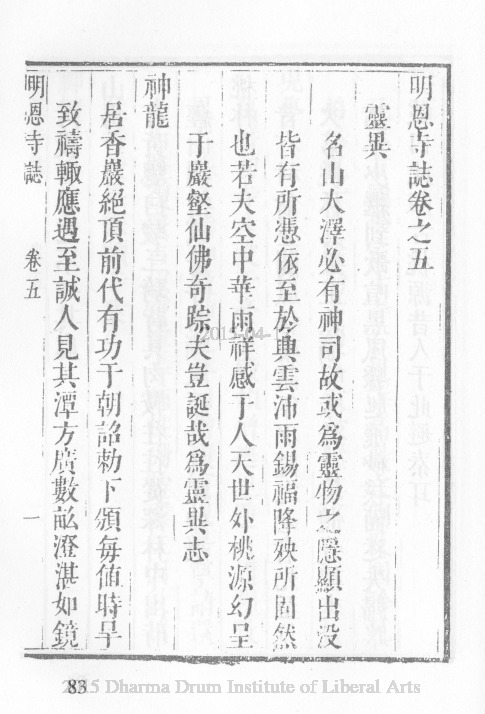 明恩寺誌卷之五
靈異
名山大澤必有神司故或為靈物之隱顯出沒
皆有所憑依至於興雲沛雨錫福降殃所固然
也若夫空中華雨祥感于人天世外桃源幻呈
于巖壑仙佛奇踪夫豈誕哉為靈異志
神龍
居香巖絕頂前代有功于朝詔勅下頒每值時旱
致禱輙應遇至誠人見其潭方廣數畝澄湛如鏡
明恩寺誌 卷五 一
83
2015 Dharma Drum Institute of Liberal Arts